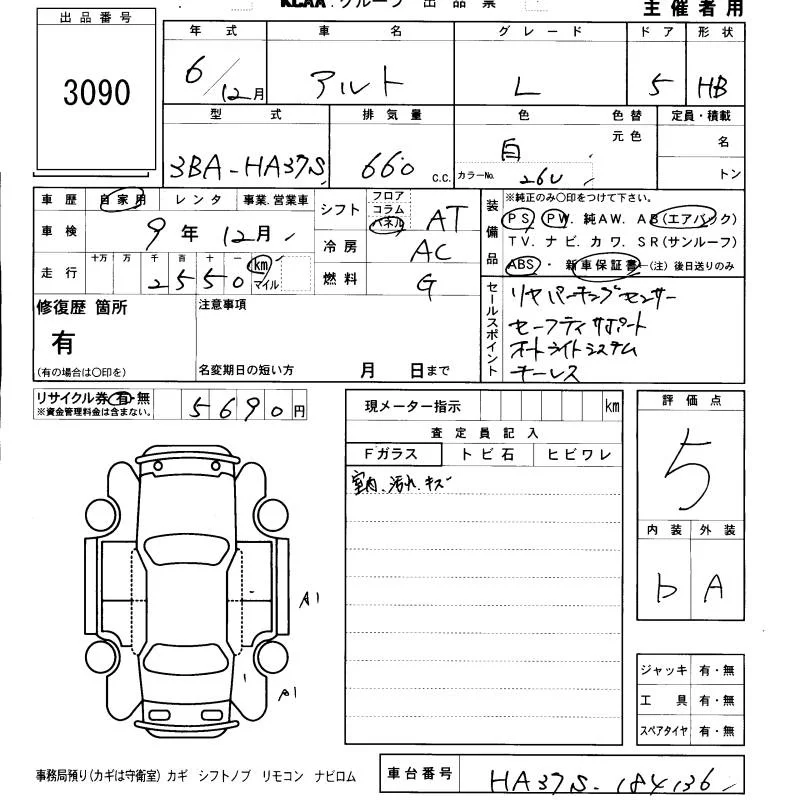 KCAA. グループ 出品票
主催者用
出品番号
3090
年式 車名 グレード ドア 形状
6/12月 アルト L 5 HB
型式 排気量 色 色替 定員・積載
元色 名
3BA-HA37S 660 C.C. 白 カラーNo. 26U トン
車歴 自家用 レンタ 事業.営業車
車検 9年 12月
走行 十万 万 千 百 十 一
2550 km マイル
シフト フロア コラム パネル AT
冷房 AC
燃料 G
装備品
※純正のみ○印をつけて下さい。
PS PW. 純AW. AB(エアバック)
TV. ナビ. カワ. SR(サンルーフ)
ABS・ 新車保証書 (注)後日送りのみ
セールスポイント
リヤパーキングセンサー
セーフティサポート
オートライトシステム
キーレス
修復歴 箇所
有
(有の場合は○印を)
注意事項
名変期日の短い方 月 日まで
リサイクル券 有・無
※資金管理料金は含まない。
5690円
現メーター指示 km
査定員記入
Fガラス トビ石 ヒビワレ
室内.汚れ.キズ
評価点
5
内装 外装
b A
A1
A1
ジャッキ 有・無
工具 有・無
スペアタイヤ 有・無
事務局預り(カギは守衛室) カギ シフトノブ リモコン ナビロム
車台番号 HA37S-184136